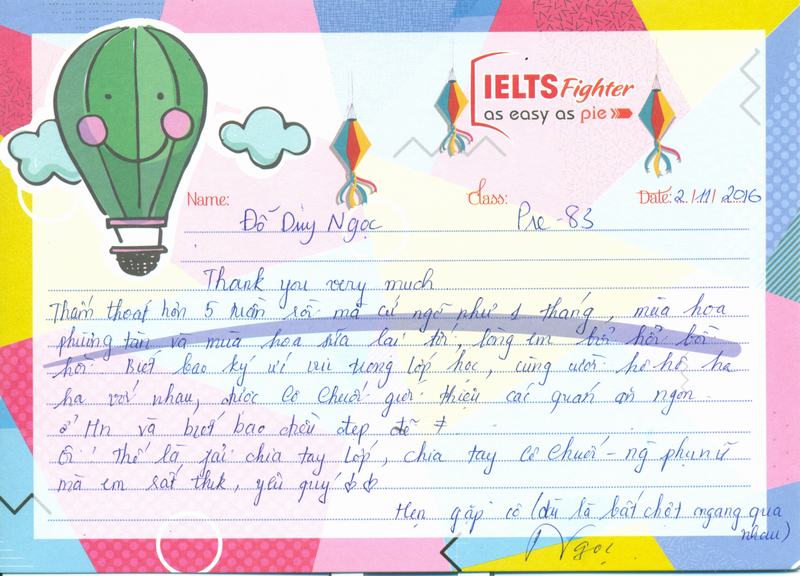 IELTS Fighter
as easy as pie
Name: Class: Date: 2/11/2016
Đỗ Duy Ngọc Pre-83
Thank you very much
Thấm thoát hơn 5 tuần rồi mà cứ ngỡ như 1 tháng, mùa hoa
phượng tàn và mùa hoa sữa lại tới, lòng em bồi hồi bồi
hồi. Biết bao ký ức vui trong lớp học, cùng cười hô hố ha
ha với nhau, được cô Chuối giới thiệu các quán ăn ngon
ở Hn và biết bao điều đẹp đẽ ≠.
Ôi! Thế là phải chia tay lớp, chia tay cô Chuối - ng phụ nữ
mà em rất thik, yêu quý
Hẹn gặp cô (dù là bất chợt ngang qua
nhau)
Ngọc